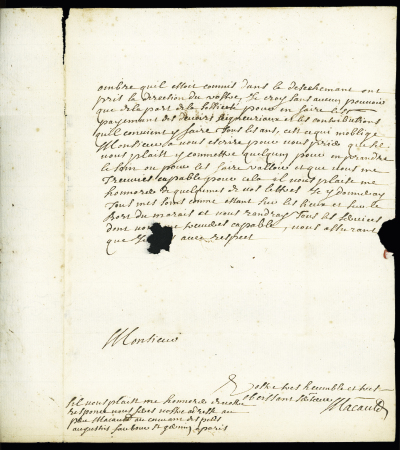 ombre quil estoit commis dans le detachemant ont
pris la direction du vostre, Je croy sans aucun pouvoir
que de la part de la pour en faire les
payemant des devoirs seigneuriaux et les contributions
quil convient y faire tous les ans, cest ce qui moblige
Monsieur a vous escrire pour vous prier que sil
vous plaist y commettre quelquun pour en prendre
le soin ou pour les faire valloir et que vous me
trouviez capable pour cela il vous plaise me
honnorer de quelqunes de vos lettres Je y donneray
tout mes soins comme estant sur les lieux et sur le
Bort du marais et vous randray tous les services
dont vous me capable, vous assurant
que Je avec respect
Monsieur
Vostre tres humble et tres
obeissant serviteur
Macault
Sil vous plaist me honnorer de vostre
responce vous ferez vostre adresse au
pere Macault au couvant des petits
augustins faubourg st germain a paris